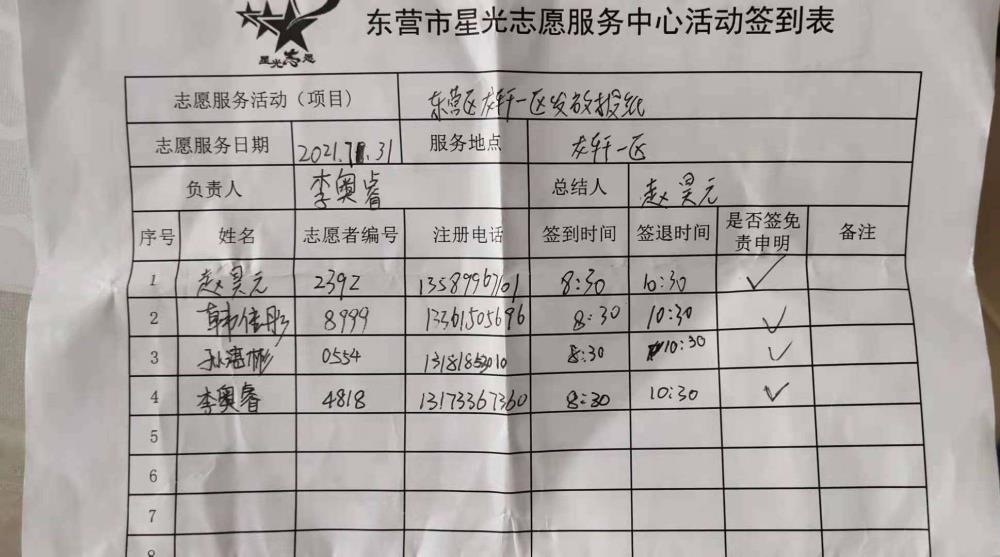 东营市星光志愿服务中心活动签到表
星光志愿
志愿服务活动（项目） 东营区龙轩一区发放报纸
志愿服务日期 2021. 31 服务地点 龙轩一区
负责人 李奥睿 总结人 赵昊元
序号 姓名 志愿者编号 注册电话 签到时间 签退时间 是否签免责申明 备注
1 赵昊元 2392 13589967101 8:30 10:30 ✓
2 韩 8999 13361505696 8:30 10:30 ✓
3 孙 彬 0554 8:30 10:30 ✓
4 李奥睿 4818 13173367360 8:30 10:30 ✓
5
6
7
8